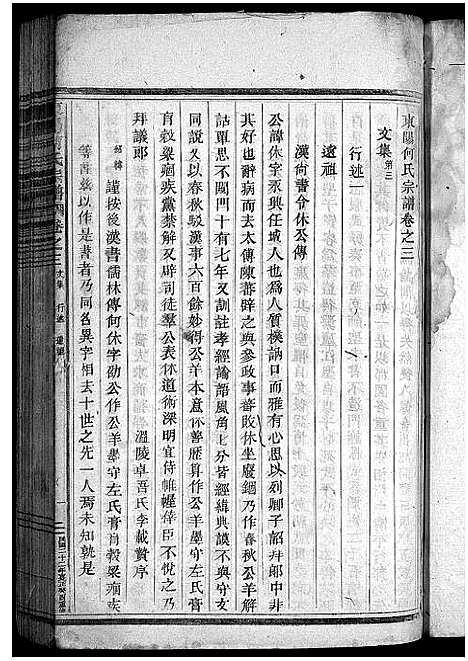 東陽何氏宗譜卷之三
文集 第三
行述一
遠祖
漢尚書令休公傳
公諱休字永興任城人也為人質樸訥口而雅有心思以列卿子詔拜郎中非
其好也辭病而去太傅陳蕃辟之與參政事蕃敗休坐廢錮乃作春秋公羊解
詁覃思不闚門十有七年又訓註孝經論語風角七分皆經緯典謨不與守文
同說又以春秋駁漢事六百餘妙得公羊本意休善歷算作公羊墨守左氏膏
肓穀梁廢疾黨禁解又辟司徒羣公表休道術深明宜侍帷幄倖臣不悅之乃
拜議郎
溫陵卓吾氏李載贄序
謹按後漢書儒林傳何休字劭公作公羊墨守左氏膏肓穀梁癈疾
等書茲以作是書者乃同名異字相去十世之先一人焉未知孰是
文集 行述 遠祖
一